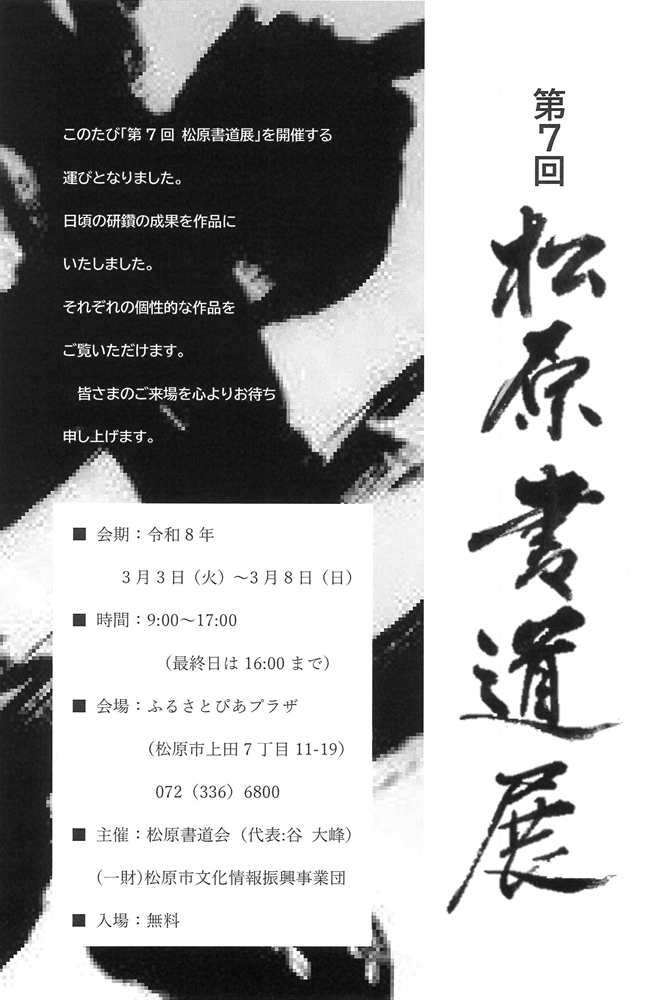 第7回
松原書道展
このたび「第7回 松原書道展」を開催する
運びとなりました。
日頃の研鑽の成果を作品に
いたしました。
それぞれの個性的な作品を
ご覧いただけます。
　皆さまのご来場を心よりお待ち
申し上げます。
■ 会期：令和8年
3月3日（火）～3月8日（日）
■ 時間：9:00～17:00
（最終日は16:00まで）
■ 会場：ふるさとぴあプラザ
（松原市上田7丁目11-19）
072（336）6800
■ 主催：松原書道会（代表:谷 大峰）
(一財)松原市文化情報振興事業団
■ 入場：無料